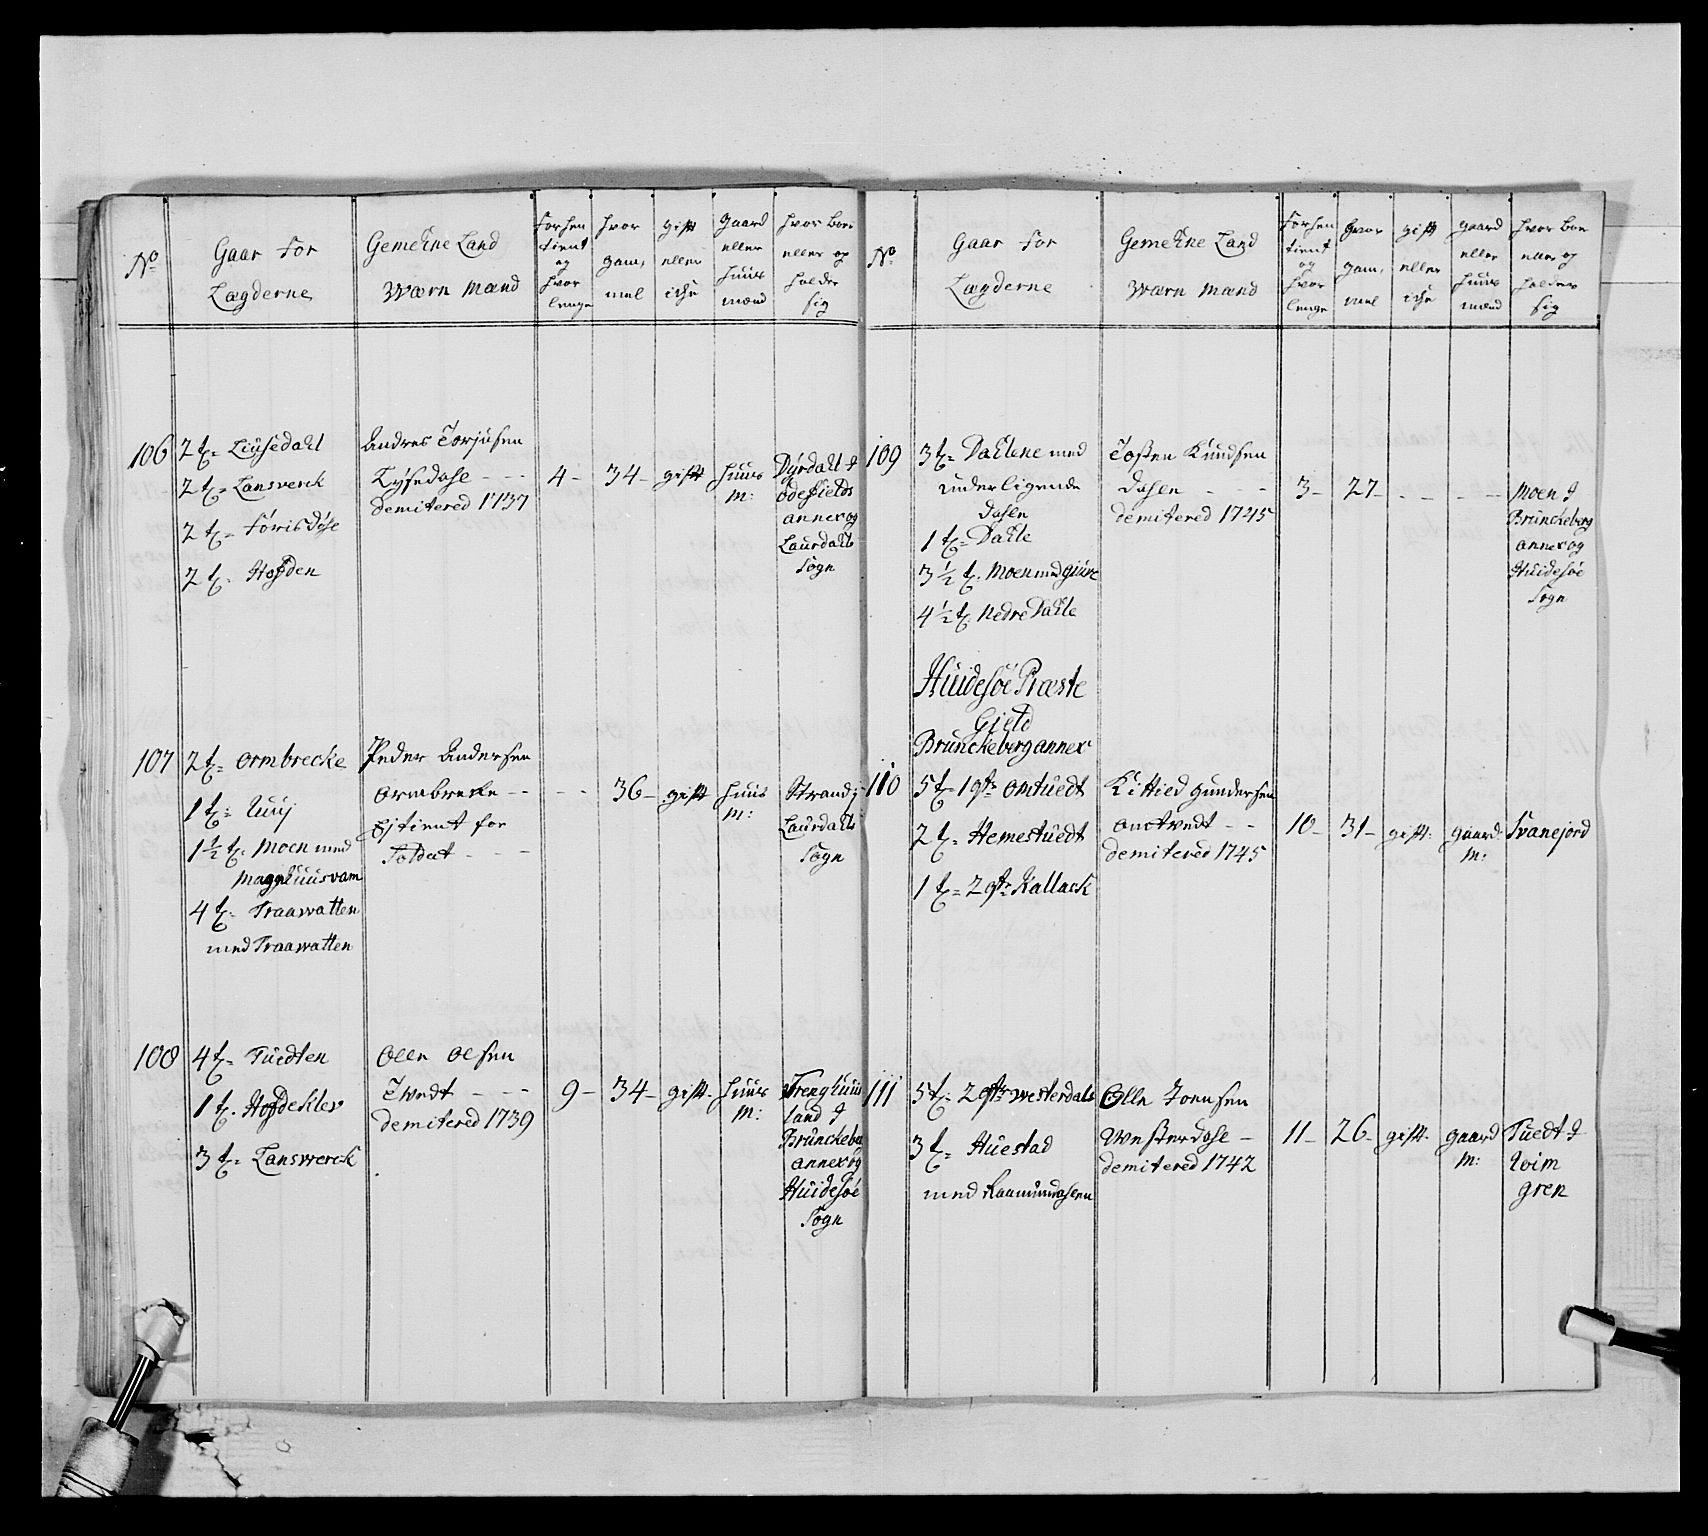 No
Gaar for
Lægderne
Gemehne Land
Wærn Mænd
Forhen
tient
og
hvor
lenge
hvor
gam,
mel
gift
eller
iche
gaard
eller
huus
mænd
hvor boer
eller op
holder
sig
106
2 t. Liusedahl
2 t. Lansverck
2 t.
2 t. Hofden
Andres Torjusen
Lysedahle
demitered 1737
4 -
34 -
gift
huus
M:
Dyrdahl I
odefields
annex og
Laurdahls
Sogn
107
2 t. Ormbrecke
1 t. Uuij
1 1/2 t. Moen med
Magnhuusvam
4 t. Traawatten
med Traawatten
Peder Andersen
Ormbreke
Ej tient for
Soldat
36 -
gift
huus
M:
Strand j
Laurdahls
Sogn
108
4 t. Tuedten
1 t. Hofdeklev
3 t. Lanswerck
Olle Olsen
Twedt
demitered 1739
9 -
34 -
gift -
huus
M:
Trenghuus
land I
Brunckeber
annex og
Huidesøe
Sogn
No
Gaar for
Lægderne
Gemehne Land
Wærn Mænd
Forhen
tient
og
hvor
lenge
hvor
gam,
mel
gift
eller
iche
gaard
eller
huus
mænd
hvor boer
eller op
holder
sig
109
3 t. Dahlene med
underligende
Dahlen
1 t. Dahle
3 1/2 t. Moen med giure
4 1/2 t. Nedre Dahle
Tosten Knudsen
Dahlen
demitered 1745
3 -
27 -
Moen I
Brunckeberg
annex og
Huidesøe
Sogn
Huidesøe Præste
Gield
Brunckeberg annex
110
5 t. 1 qtr Omtuedt
2 t. Hemestuedt
1 t. 2 qtr Kallack
Kittied gundersen
Omtvedt
demitered 1745
10 -
31 -
gift.
gaard.
M:
Svanejord
111
5 t. 2 qtr Westerdals
3 t. Huestad
med Raamundahlen
Olle Joensen
Westerdahle -
demitered 1742
11 -
26 -
gift -
gaard
M:
Tuedt I
Hvim
gren